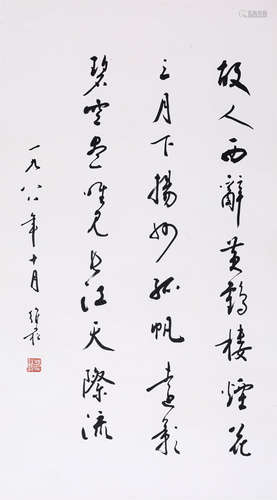 故人西辭黄鶴樓煙花
三月下揚州孤帆遠影
碧空尽唯见长江天際流
一九八八年十月